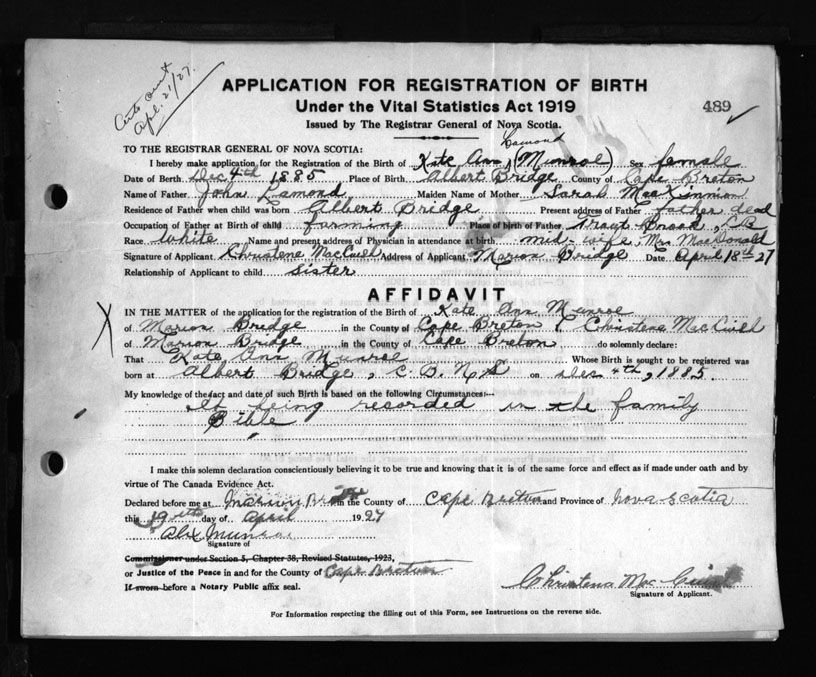 Apl. 21/27.
APPLICATION FOR REGISTRATION OF BIRTH
Under the Vital Statistics Act 1919
489
Issued by The Registrar General of Nova Scotia.
TO THE REGISTRAR GENERAL OF NOVA SCOTIA:
Lamond
I hereby make application for the Registration of the Birth of Kate Ann (Munroe) Sex female
Date of Birth Dec 4th 1885 Place of Birth Albert Bridge County of Cape Breton
Name of Father John Lamond Maiden Name of Mother Sarah MacKinnon
Residence of Father when child was born Albert Bridge Present address of Father father dead
Occupation of Father at Birth of child farming Place of birth of Father Trout Brook, C B
Race White Name and present address of Physician in attendance at birth mid-wife, Mrs MacDonald
Signature of Applicant Christene Address of Applicant Marion Bridge Date April 18th 27
Relationship of Applicant to child sister
AFFIDAVIT
IN THE MATTER of the application for the registration of the Birth of Kate Ann Munroe
of Marion Bridge in the County of Cape Breton I Christena
of Marion Bridge in the County of Cape Breton do solemnly declare:
That Kate Ann Munroe Whose Birth is sought to be registered was
born at Albert Bridge, C. B. N. S on Dec 4th, 1885.
My knowledge of the fact and date of such Birth is based on the following Circumstances:—
It being recorded in the family
Bible
I make this solemn declaration conscientiously believing it to be true and knowing that it is of the same force and effect as if made under oath and by
virtue of The Canada Evidence Act.
Declared before me at Marion in the County of Cape Breton and Province of Nova Scotia
this 19th day of April 1927
Alex Munro
Signature of
Commissioner under Section 5, Chapter 38, Revised Statutes, 1923,
or Justice of the Peace in and for the County of Cape Breton
If sworn before a Notary Public affix seal.
Christena Mac
Signature of Applicant.
For Information respecting the filling out of this Form, see Instructions on the reverse side.